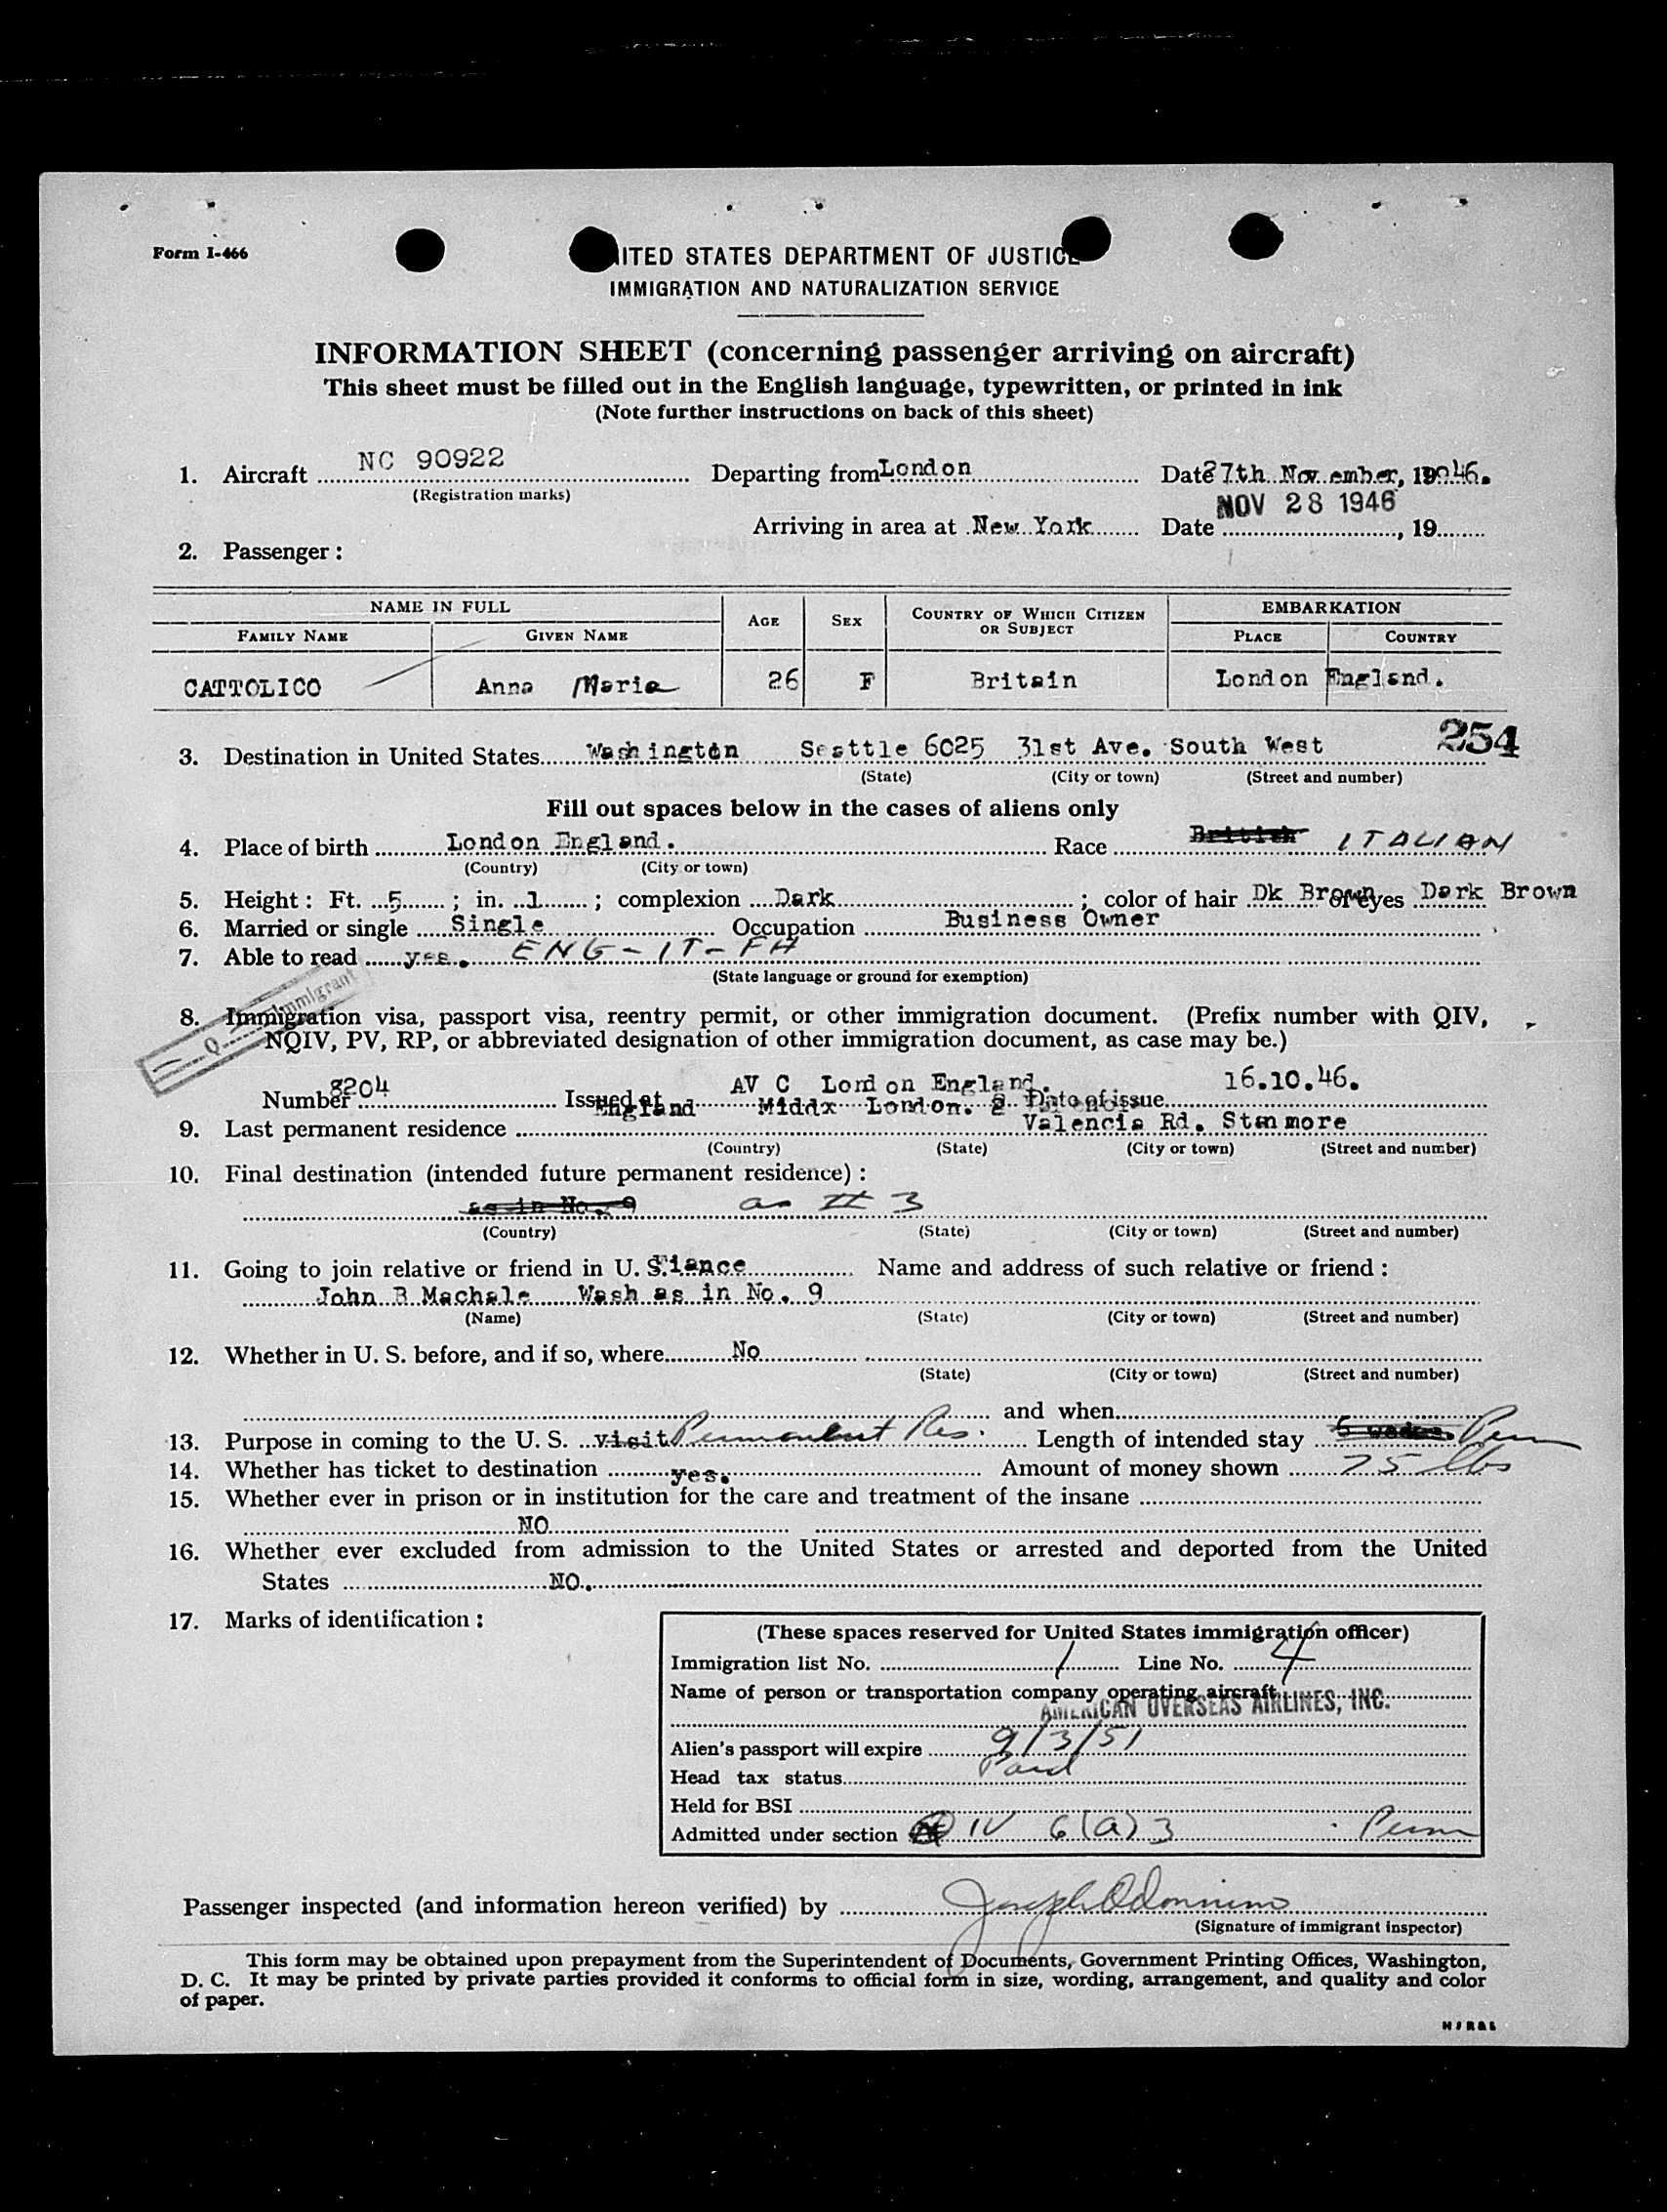 Form I-466
ITED STATES DEPARTMENT OF JUSTICE
IMMIGRATION AND NATURALIZATION SERVICE
INFORMATION SHEET (concerning passenger arriving on aircraft)
This sheet must be filled out in the English language, typewritten, or printed in ink
(Note further instructions on back of this sheet)
1. Aircraft NC 90922 Departing from London Date 27th November, 1946.
(Registration marks)
NOV 28 1946
Arriving in area at New York Date , 19
2. Passenger:
NAME IN FULL AGE SEX COUNTRY OF WHICH CITIZEN OR SUBJECT EMBARKATION
FAMILY NAME GIVEN NAME PLACE COUNTRY
CATTOLICO Anna Maria 26 F Britain London England.
254
3. Destination in United States Washington Seattle 6025 31st Ave. South West
(State) (City or town) (Street and number)
Fill out spaces below in the cases of aliens only
4. Place of birth London England. Race British ITALIAN
(Country) (City or town)
5. Height: Ft. 5; in. 1; complexion Dark; color of hair Dk Brown eyes Dark Brown
6. Married or single Single Occupation Business Owner
7. Able to read yes. ENG - IT - FH
(State language or ground for exemption)
Q Immigrant
8. Immigration visa, passport visa, reentry permit, or other immigration document. (Prefix number with QIV,
NQIV, PV, RP, or abbreviated designation of other immigration document, as case may be.)
Number 8204 Issued at AV C London England. Date of issue 16.10.46.
9. Last permanent residence England Middx London. 2 Valencia Rd. Stanmore
(Country) (State) (City or town) (Street and number)
10. Final destination (intended future permanent residence):
as in No. 9 as # 3
(Country) (State) (City or town) (Street and number)
11. Going to join relative or friend in U. S. Fiance Name and address of such relative or friend:
John R Machale Wash as in No. 9
(Name) (State) (City or town) (Street and number)
12. Whether in U. S. before, and if so, where No
(State) (City or town) (Street and number)
and when
13. Purpose in coming to the U. S. visit Permanent Res. Length of intended stay 6 weeks. Perm
14. Whether has ticket to destination yes. Amount of money shown 75 lbs
15. Whether ever in prison or in institution for the care and treatment of the insane
NO
16. Whether ever excluded from admission to the United States or arrested and deported from the United
States NO.
17. Marks of identification:
(These spaces reserved for United States immigration officer)
Immigration list No. 1 Line No. 4
Name of person or transportation company operating aircraft
AMERICAN OVERSEAS AIRLINES, INC.
Alien's passport will expire 9/3/51
Head tax status Paid
Held for BSI
Admitted under section IV 6(a)3 Perm
Passenger inspected (and information hereon verified) by
(Signature of immigrant inspector)
This form may be obtained upon prepayment from the Superintendent of Documents, Government Printing Offices, Washington,
D. C. It may be printed by private parties provided it conforms to official form in size, wording, arrangement, and quality and color
of paper.